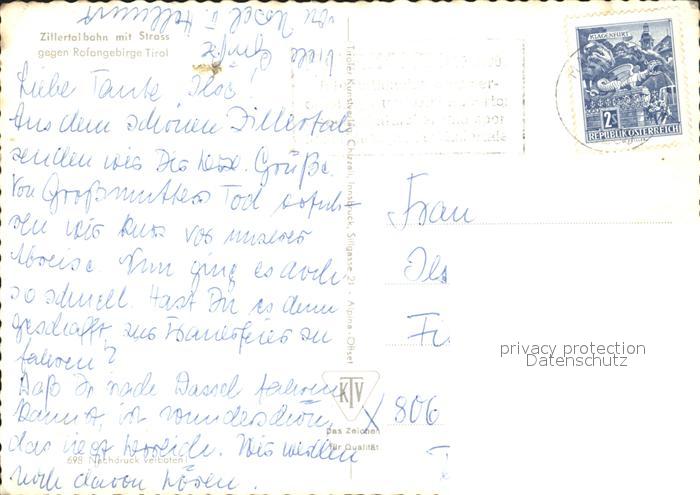 Zillertalbahn mit Strass
gegen Rofangebirge Tirol
Liebe Tante Ilse!
Aus dem schönen Zillertal
senden wir Dir herzl. Grüße.
Von Großmutters Tod erfuh-
ren wir kurz vor unserer
Abreise. Nun ging es doch
so schnell. Hast Du es denn
geschafft, zur Trauerfeier zu
fahren?
Daß Ihr nach Dassel fahren
könnt, ist wunderschön,
das liegt herrlich. Wir werden
noch davon hören.
Viele Grüße
von Rosel u. Hellmut
698 Nachdruck verboten!
Tiroler Kunstverlag Chizzali, Innsbruck, Sillgasse 21 · Alpina-Offset
KTV
Das Zeichen
für Qualität
KLAGENFURT
2 S
REPUBLIK ÖSTERREICH
Frau
Ils
Fi
X 806
privacy protection
Datenschutz